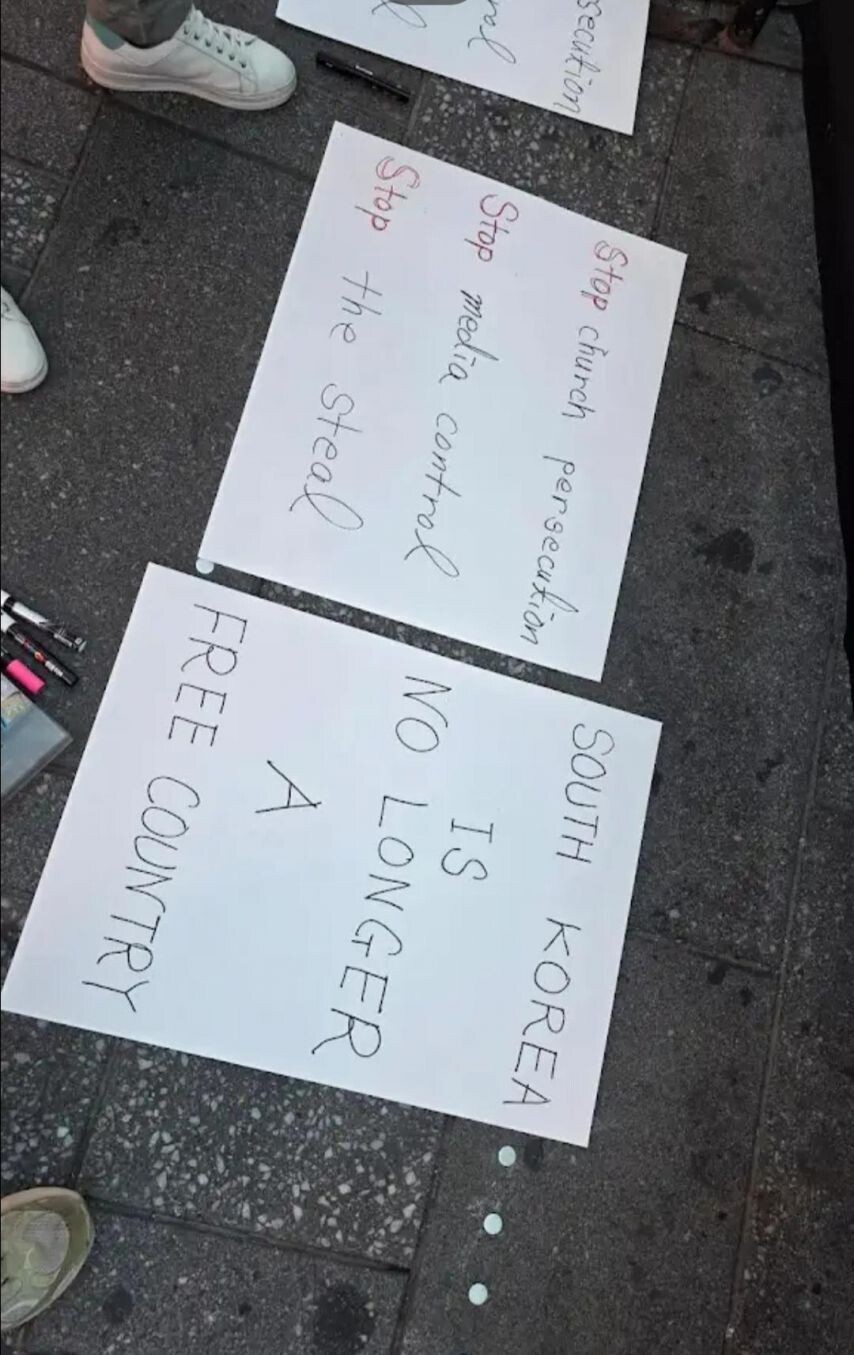 Stop church persecution
Stop media control
Stop the steal
SOUTH KOREA
IS
NO LONGER
A
FREE COUNTRY